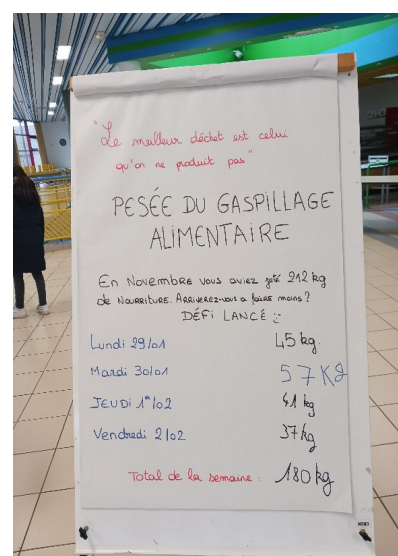 "Le meilleur déchet est celui
qu'on ne produit pas"
PESÉE DU GASPILLAGE
ALIMENTAIRE
En Novembre vous aviez jeté 212 kg
de NOURRITURE. ARRIVEREZ-VOUS a faire moins ?
DÉFI LANCÉ :
Lundi 29/01 45 kg.
Mardi 30/01 57 Kg
JEUDI 1er/02 41 kg
Vendredi 2/02 37 kg
Total de la semaine : 180 kg